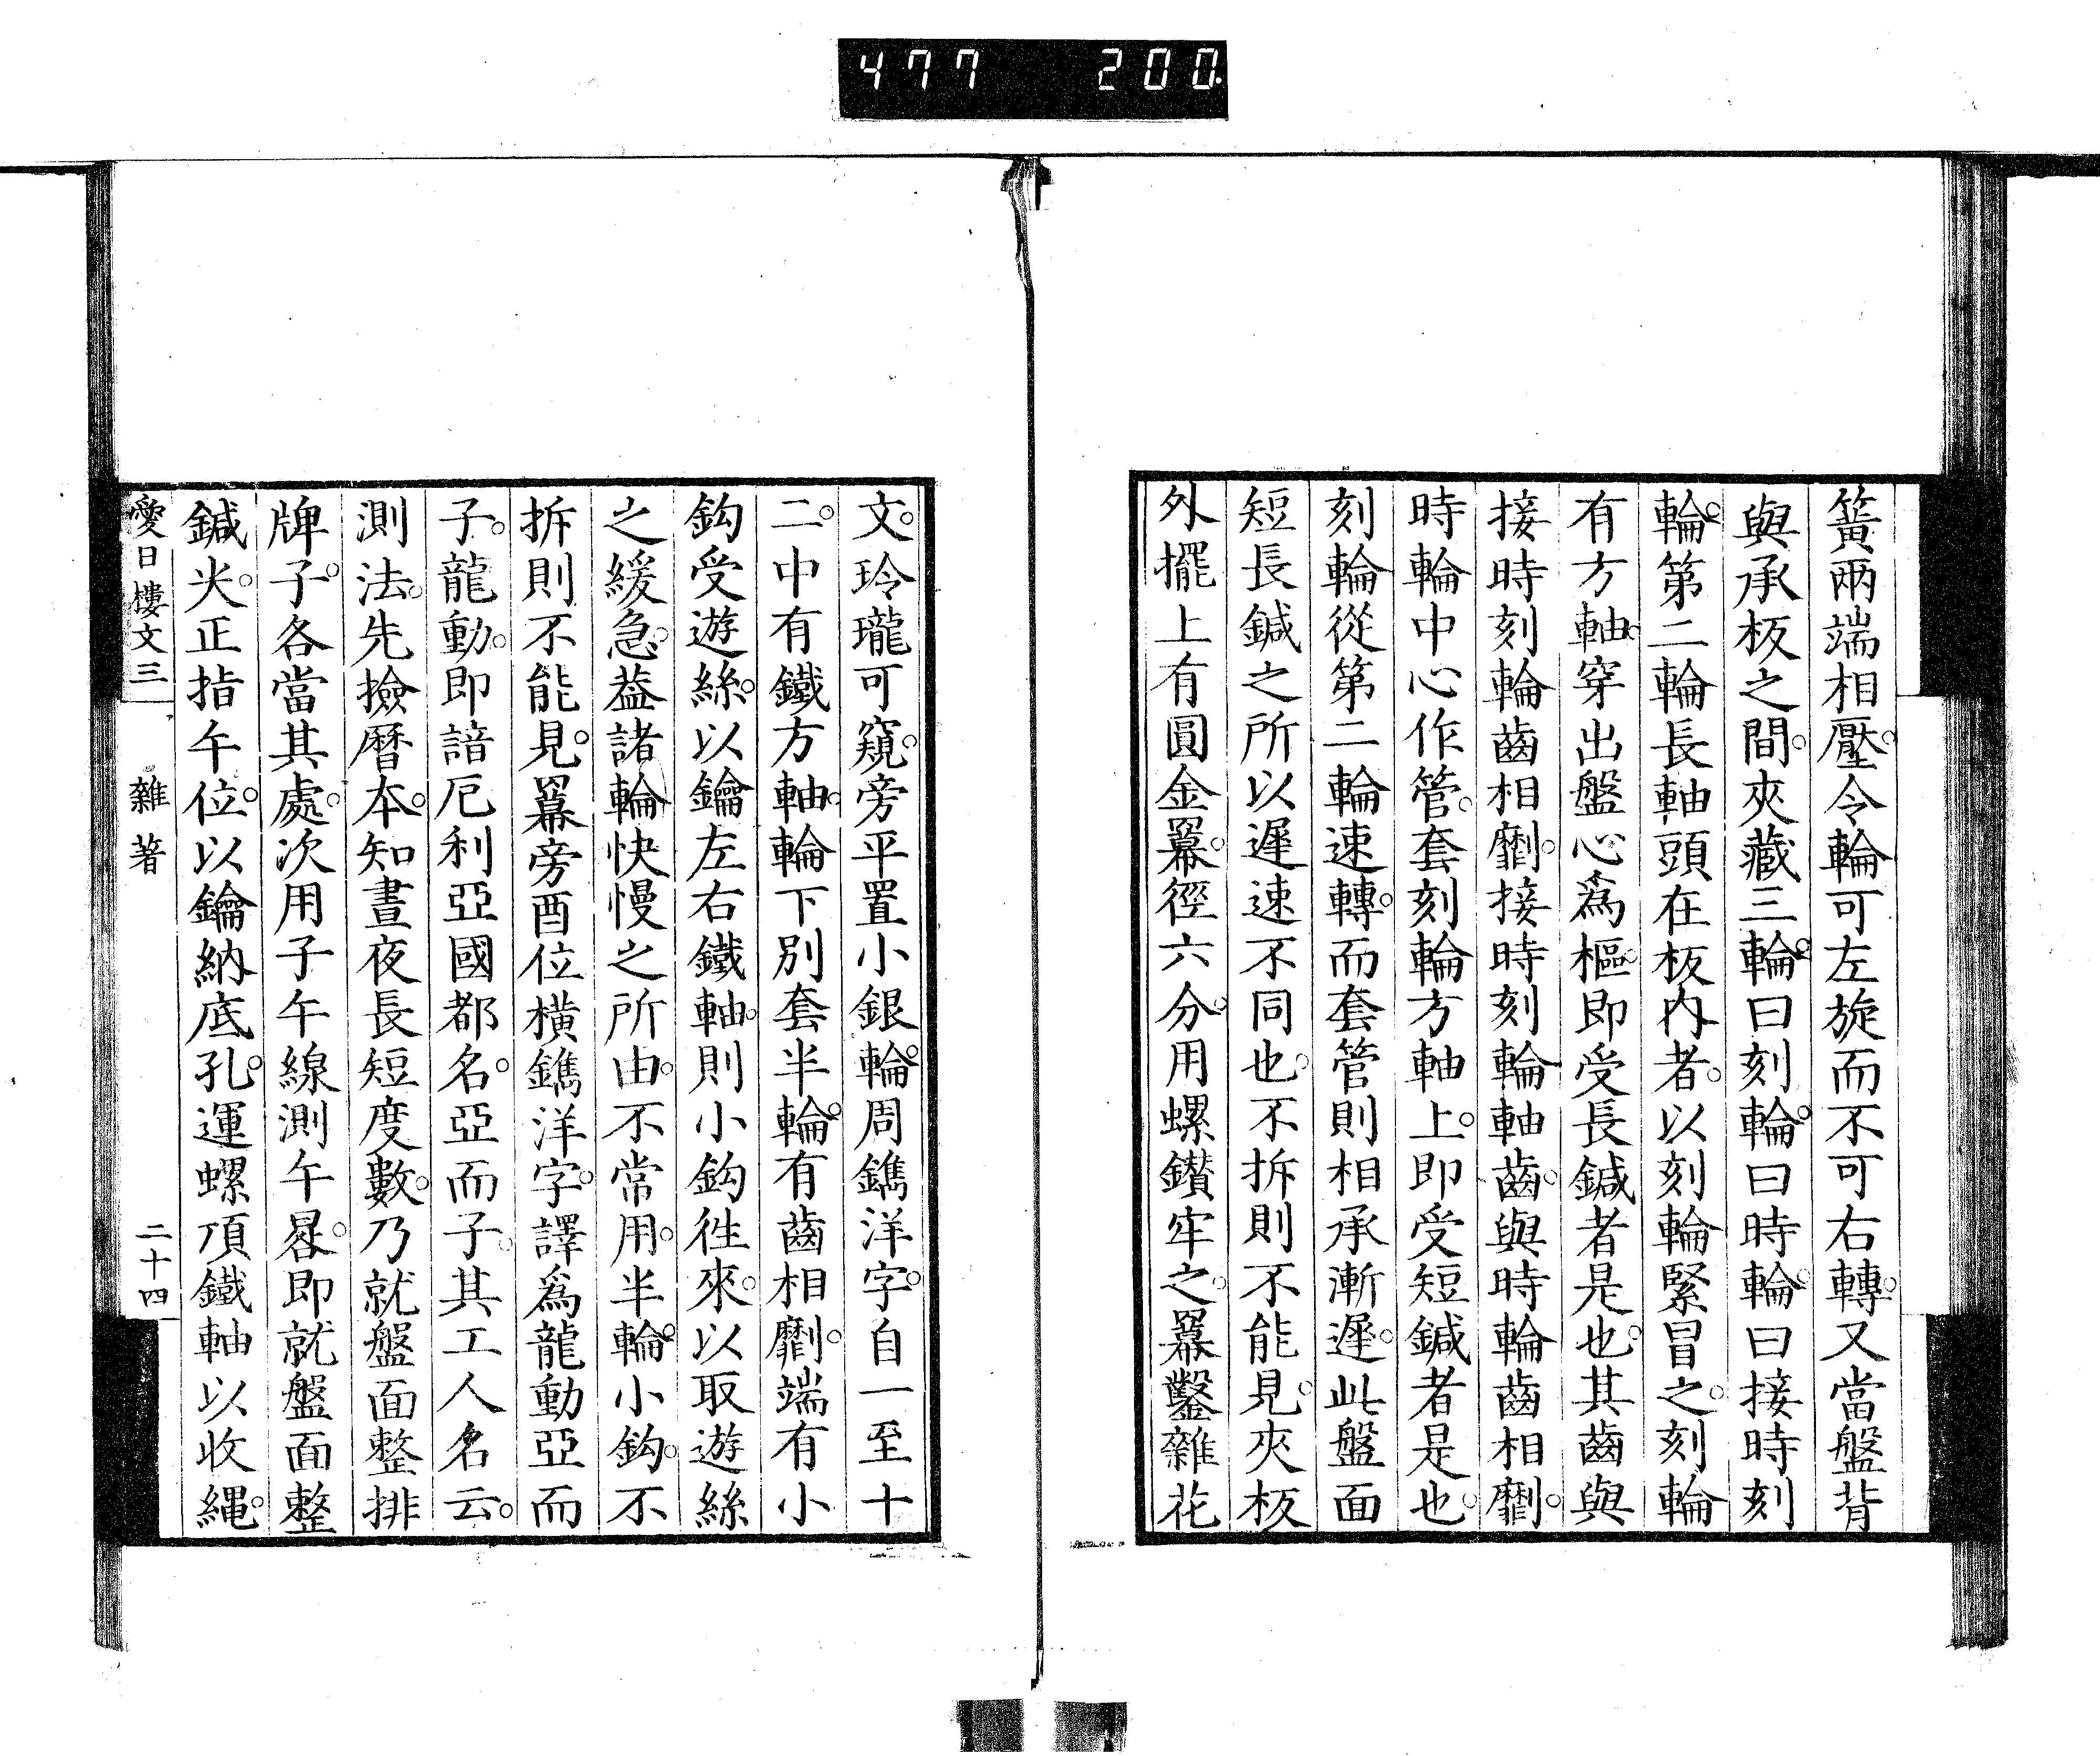 477 200.
簧兩端相壓。令輪可左旋而不可右轉。又當盤背
與承板之間。夾藏三輪。曰刻輪。曰時輪。曰接時刻
輪。第二輪長軸頭在板內者。以刻輪緊冒之。刻輪
有方軸。穿出盤心爲樞。即受長鍼者是也。其齒與
接時刻輪齒相劘。接時刻輪軸齒。與時輪齒相劘。
時輪中心作管。套刻輪方軸上。即受短鍼者是也。
刻輪從第二輪速轉。而套管則相承漸遲。此盤面
短長鍼之所以遲速不同也。不拆則不能見。夾板
外擺上有圓金羃。徑六分。用螺鑚牢之。羃鑿雜花
文。玲瓏可窺。旁平置小銀輪。周鐫洋字。自一至十
二。中有鐵方軸。輪下別套半輪。有齒相劘。端有小
鈎受遊絲。以鑰左右鐵軸。則小鈎徃來。以取遊絲
之緩急。葢諸輪快慢之所由。不常用。半輪。小鈎。不
拆則不能見。羃旁酉位橫鐫洋字。譯爲龍動亞而
子。龍動。即諳厄利亞國都名。亞而子。其工人名云。
測法。先撿曆本。知晝夜長短度數。乃就盤面整排
牌子。各當其處。次用子午線測午晷。即就盤面整
鍼。火正指午位。以鑰納底孔。運螺頂鐵軸以收繩。
愛日樓文三 雜著 二十四